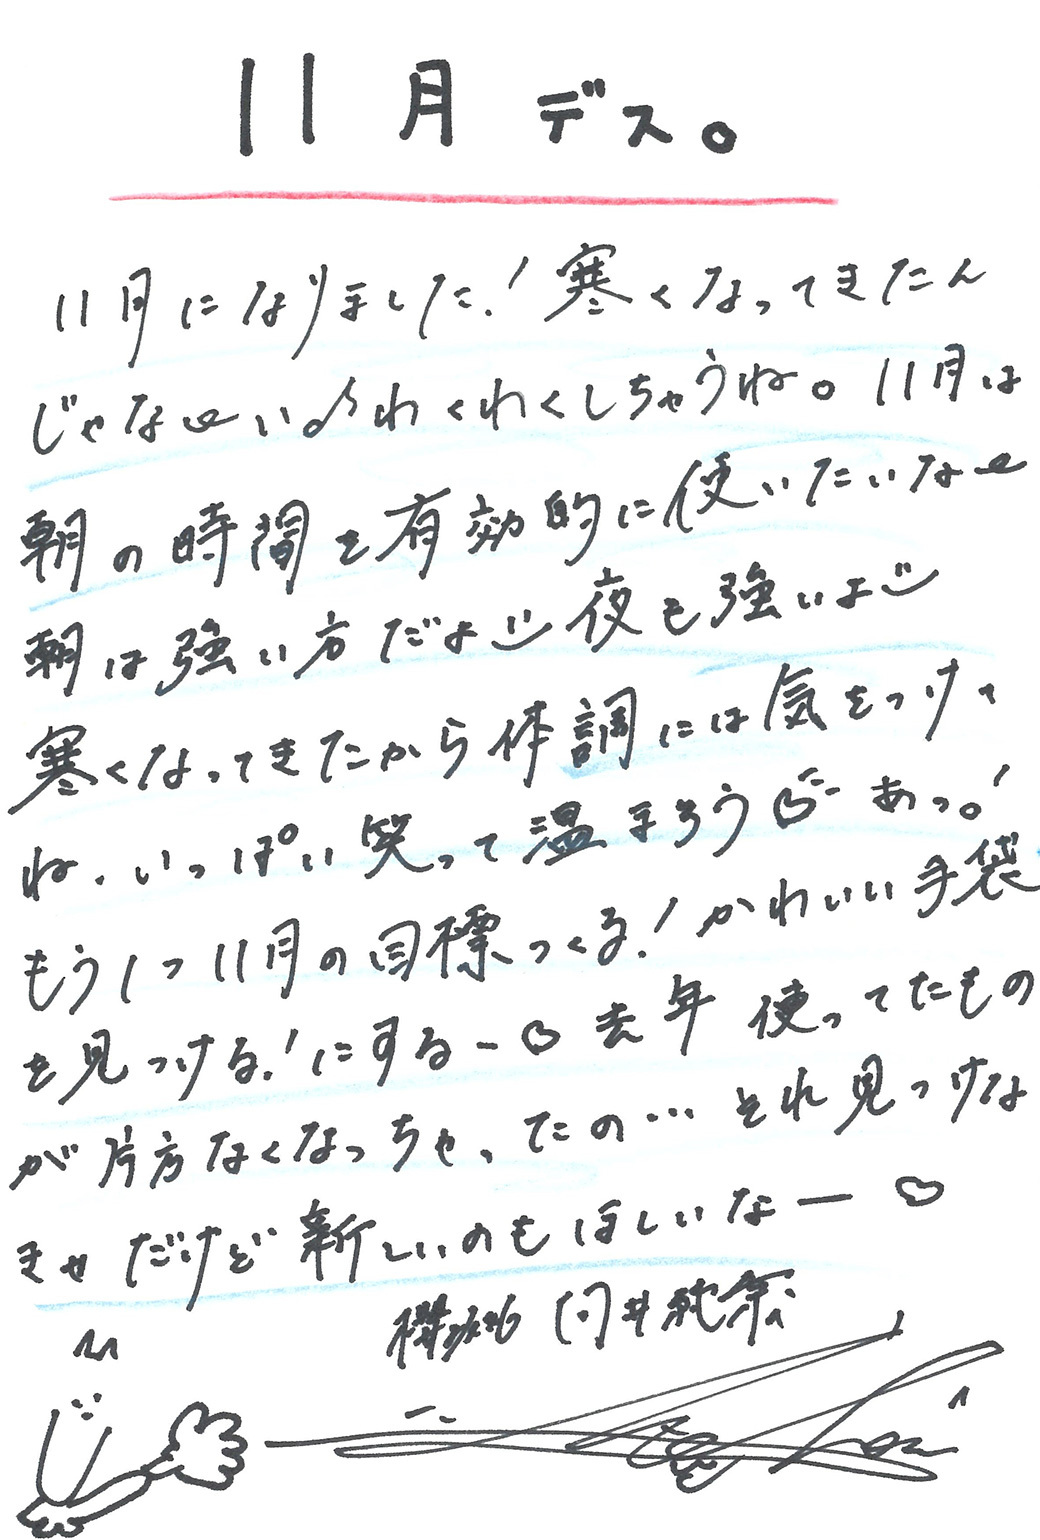 11月デス。
11月になりました!寒くなってきたん
じゃな〜い♪わくわくしちゃうね。11月は
朝の時間を有効的に使いたいな〜
朝は強い方だよ 夜も強いよ
寒くなってきたから体調には気をつけて
ね、いっぱい笑って温まろう♡ あっ!
もう1つ11月の目標つくる!かわいい手袋
を見つける!にするー♡ 去年使ってたもの
が片方なくなっちゃったの… それ見つけな
きゃだけど新しいのもほしいなー ♡
櫻坂46 向井純葉